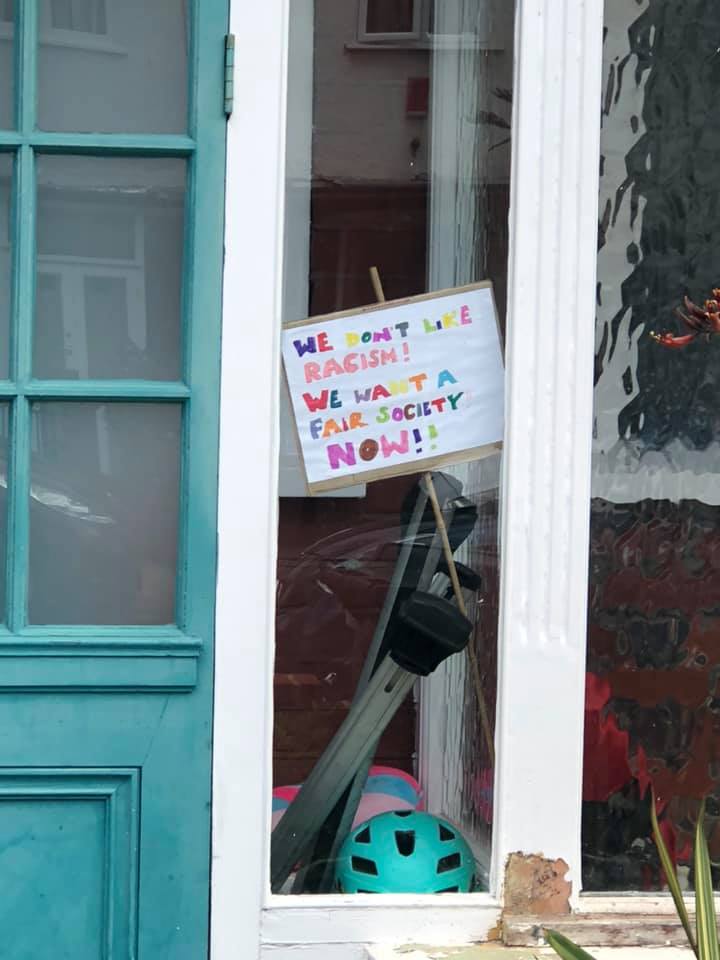 WE DON'T LIKE
RACISM!
WE WANT A
FAIR SOCIETY
NOW!!